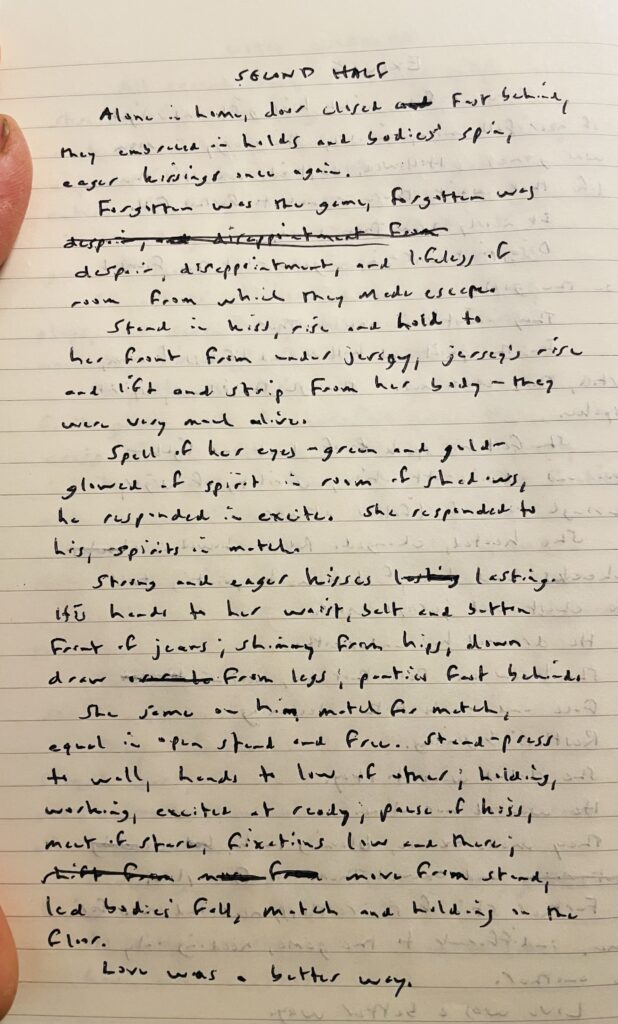 SECOND HALF
Alone in home, door closed and fast behind,
they embraced in holds and bodies' spin,
eager kissings once again.
Forgotten was the game, forgotten was
despair, and disappointment from
despair, disappointment, and lifeless of
room from which they made escape.
Stand in kiss, rise and hold to
her front from under jersey, jersey's rise
and lift and strip from her body - they
were very much alive.
Spell of her eyes - green and gold -
glowed of spirit in room of shadows,
he responded in excite. She responded to
his, spirits in match.
Strong and eager kisses lasting lasting.
His hands to her waist, belt and button
front of jeans; shimmy from hips, down
draw from legs; panties fast behind.
She same on him, match for match,
equal in open stand and free. Stand-press
to wall, hands to low of other; holding,
working, excited at ready; pause of kiss,
meet of stare, fixations low and there;
shift from move from move from stand,
led bodies' fall, match and holding on the
floor.
Love was a better way.